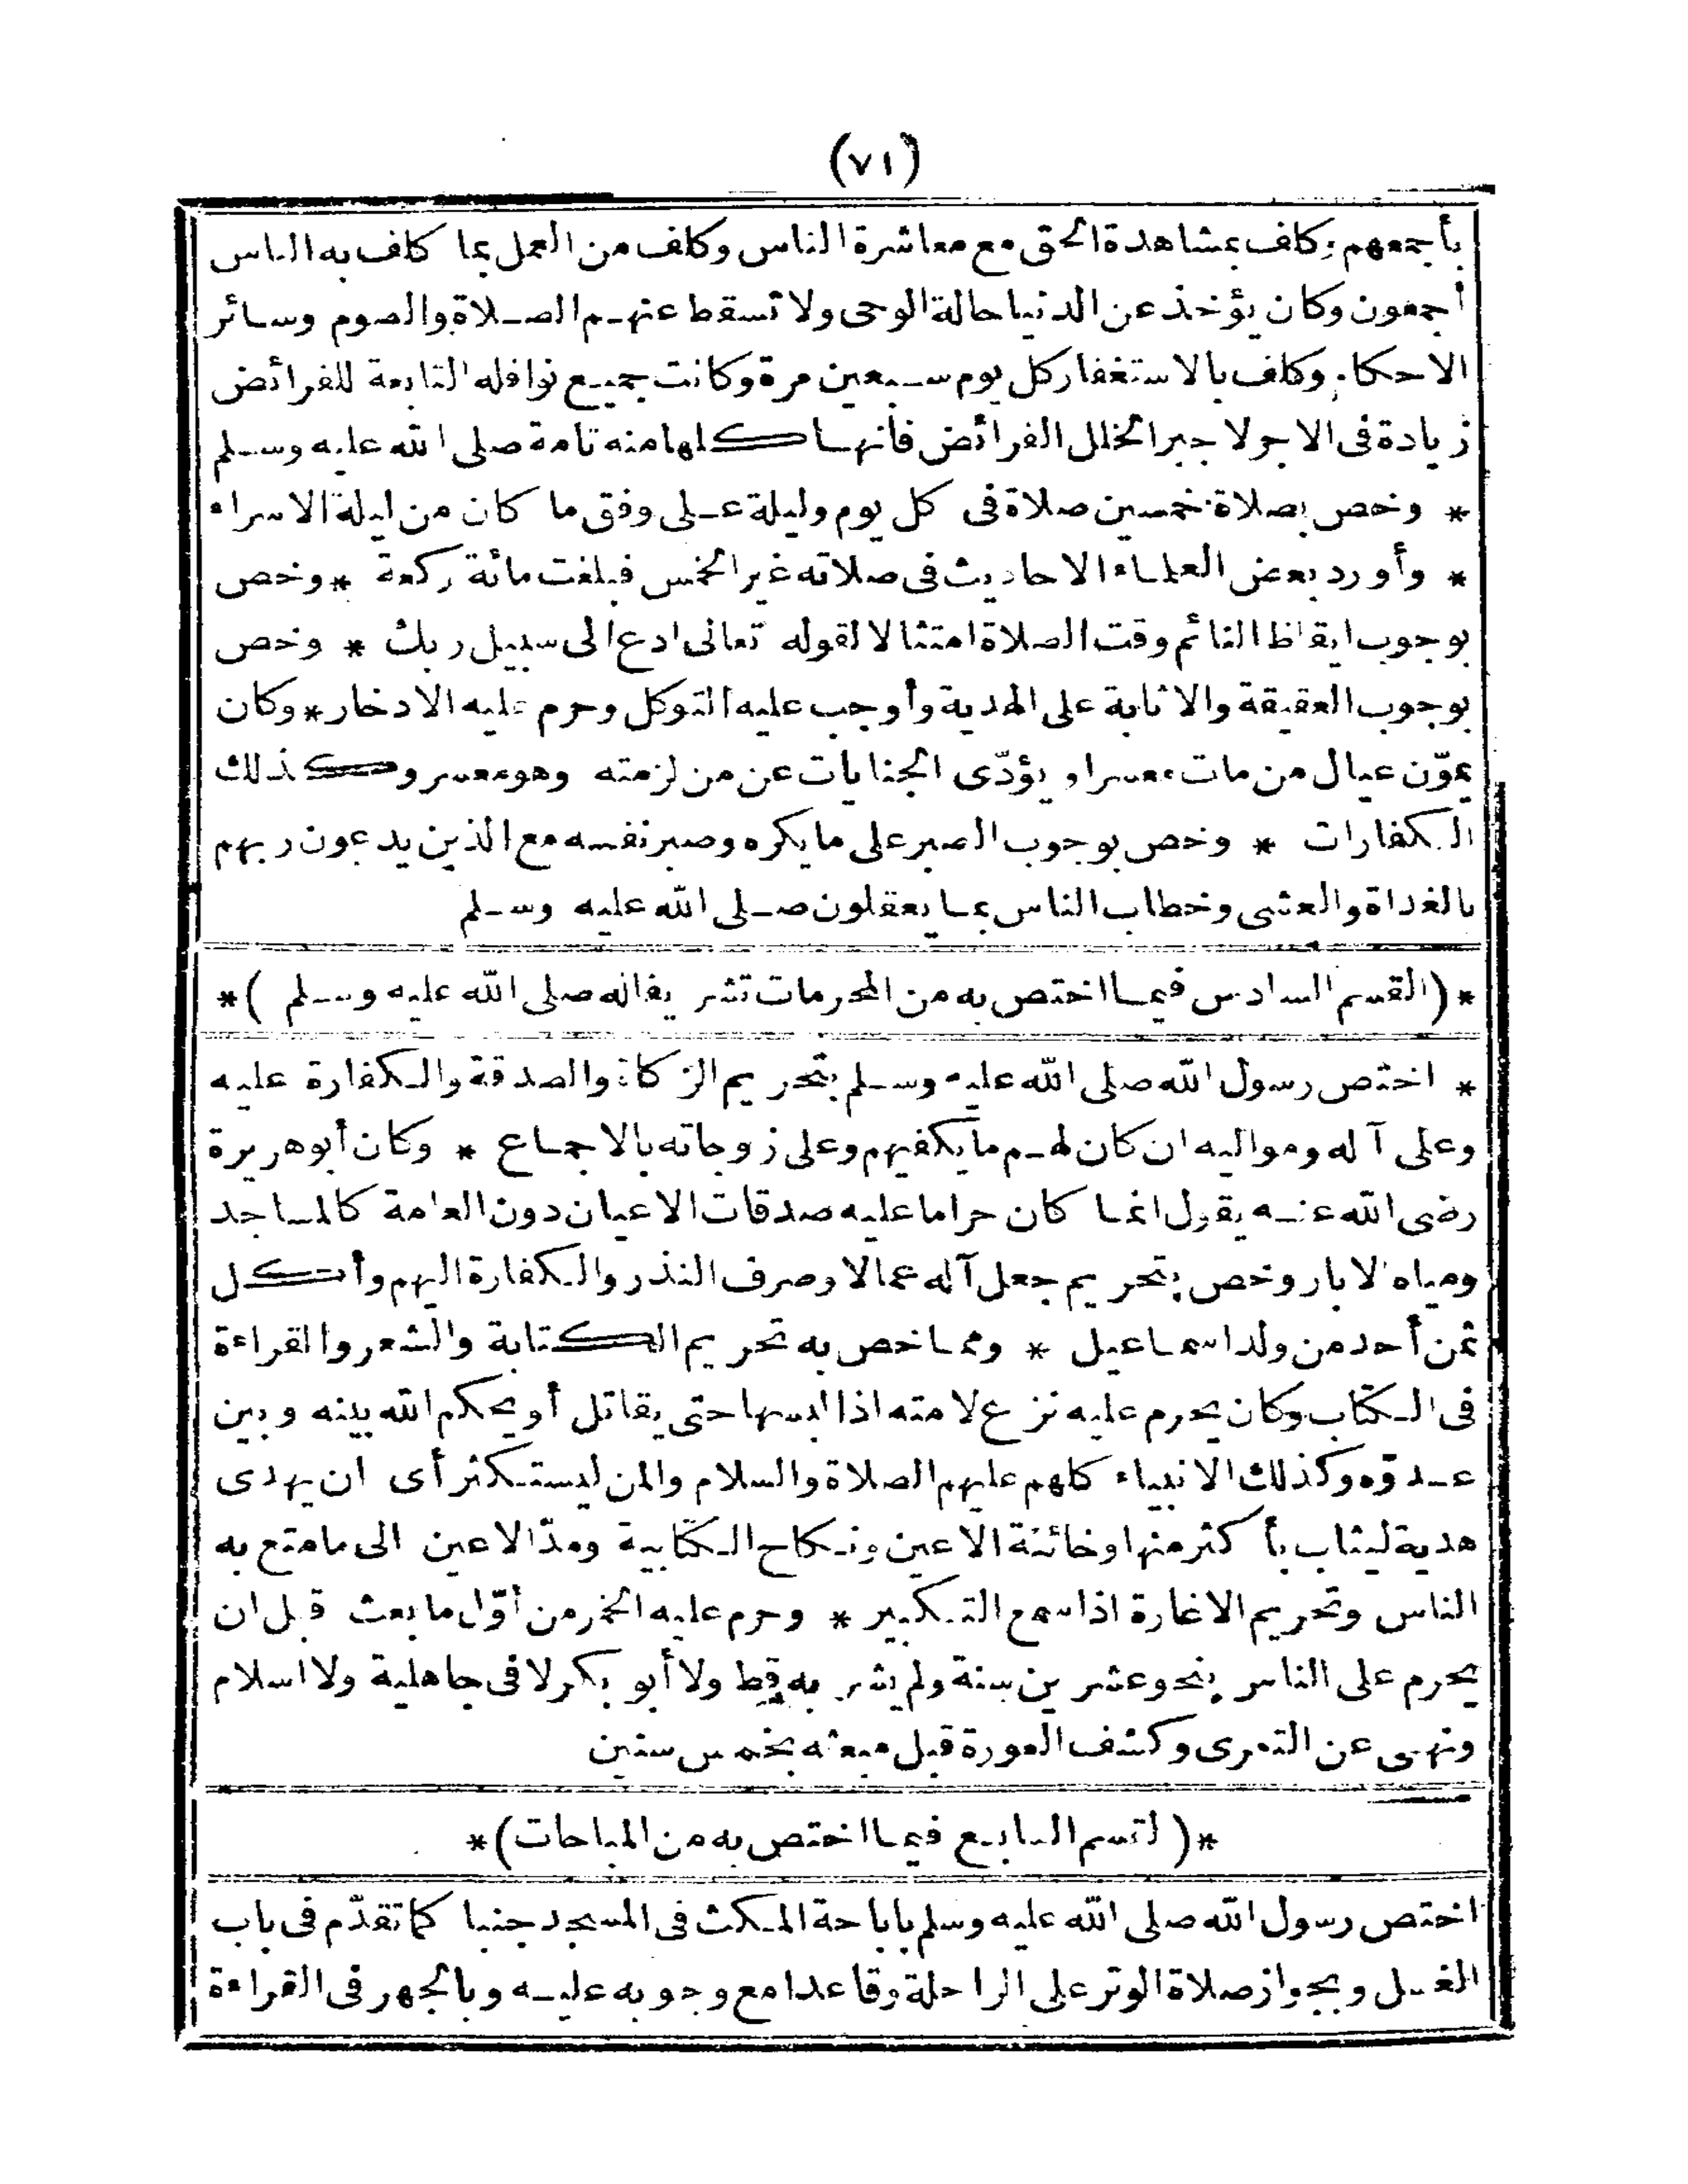 (٧١)
بأجمعهم وكلف بمشاهدة الحق مع معاشرة الناس وكلف من العمل بما كلف به الناس
أجمعون وكان يؤخذ عن الدنيا حالة الوحى ولا تسقط عنهم الصلاة والصوم وسائر
الاحكام وكلف بالاستغفار كل يوم سبعين مرة وكانت جميع نوافله التابعة للفرائض
زيادة فى الاجر لا جبرا لخلل الفرائض فأنها كلها منه تامة صلى الله عليه وسلم
* وخص بصلاة خمسين صلاة فى كل يوم وليلة على وفق ما كان من ليلة الاسراء
* وأورد بعض العلماء الاحاديث فى صلاته غير الخمس فبلغت مائة ركعة * وخص
بوجوب ايقاظ النائم وقت الصلاة امتثالا لقوله تعالى ادع الى سبيل ربك * وخص
بوجوب العقيقة والاثابة على الهدية وأوجب عليه التوكل وحرم عليه الادخار * وكان
يموّن عيال من مات معسرا ويؤدّى الجنايات عن من لزمته وهو معسر وكذلك
الكفارات * وخص بوجوب الصبر على ما يكره وصبر نفسه مع الذين يدعون ربهم
بالغداة والعشى وخطاب الناس بما يعقلون صلى الله عليه وسلم
*(القسم السادس فيما اختص به من المحرمات تشريفا له صلى الله عليه وسلم)*
* اختص رسول الله صلى الله عليه وسلم بتحريم الزكاة والصدقة والكفارة عليه
وعلى آله ومواليه ان كان لهم ما يكفيهم وعلى زوجاته بالاجماع * وكان أبو هريرة
رضى الله عنه يقول انما كان حراما عليه صدقات الاعيان دون العامة كالمساجد
ومياه الابار وخص بتحريم جعل آله عمالا وصرف النذر والكفارة اليهم وأكل
ثمن أحد من ولد اسماعيل * ومما خص به تحريم الكتابة والشعر والقراءة
فى الكتاب وكان يحرم عليه نزع لامته اذا لبسها حتى يقاتل أو يحكم الله بينه وبين
عدوّه وكذلك الانبياء كلهم عليهم الصلاة والسلام والمن ليستكثر أى ان يهدى
هدية ليثاب بأكثر منها وخائنة الاعين ونكاح الكتابية ومدّ الاعين الى ما متع به
الناس وتحريم الاغارة اذا سمع التكبير * وحرم عليه الخمر من أوّل ما بعث قبل ان
يحرم على الناس بنحو عشرين سنة ولم يشربه قط ولا أبو بكر لا فى جاهلية ولا اسلام
ونهى عن التعرى وكشف العورة قبل مبعثه بخمس سنين
*(لقسم السابع فيما اختص به من المباحات)*
اختص رسول الله صلى الله عليه وسلم باباحة المكث فى المسجد جنبا كما تقدّم فى باب
الغسل وبجواز صلاة الوتر على الراحلة وقاعدا مع وجوبه عليه وبالجهر فى القراءة